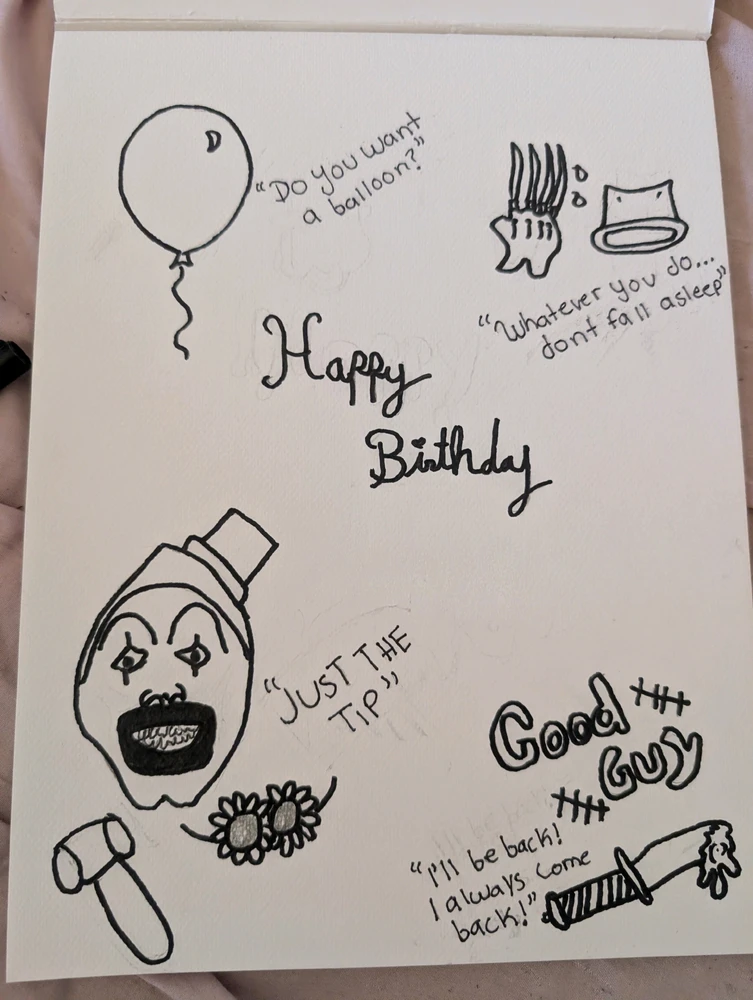 "Do you want
a balloon?"
"Whatever you do...
dont fall asleep"
Happy
Birthday
"JUST THE
TIP"
Good
GUY
"I'll be back!
I always come
back!"